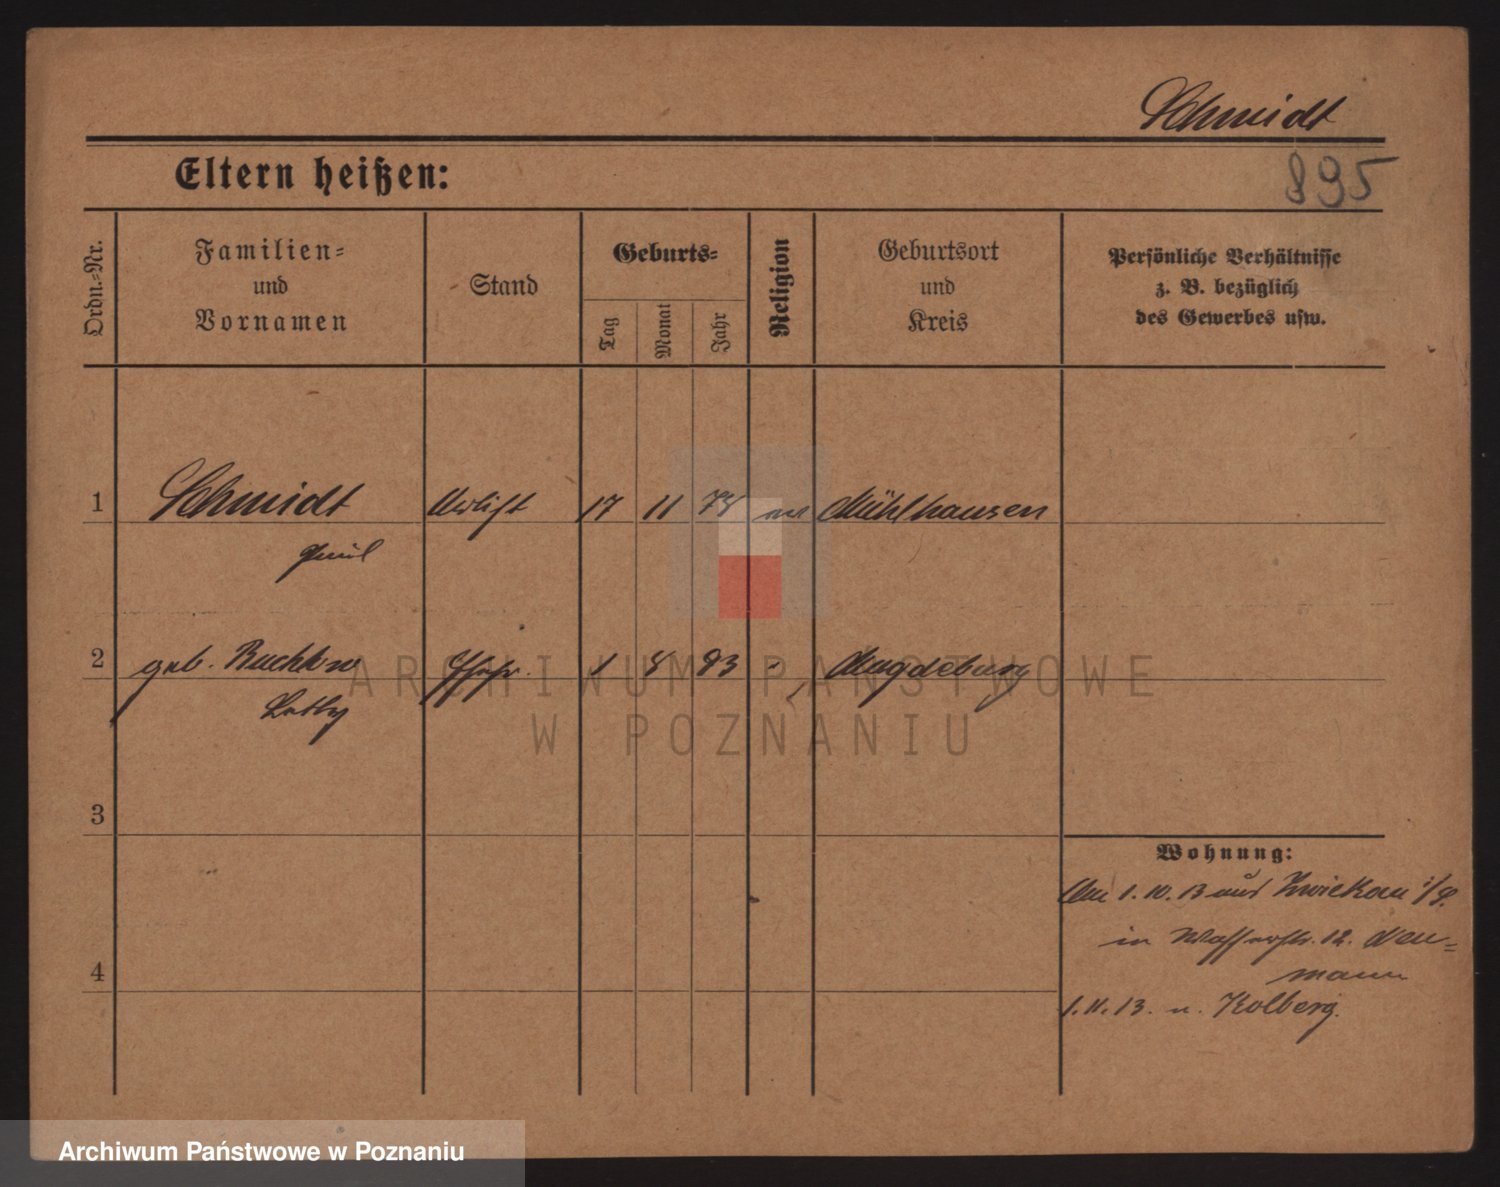 Schmidt
895
Eltern heißen:
Ordn.-Nr.
Familien-
und
Vornamen
Stand
Geburts-
Tag
Monat
Jahr
Religion
Geburtsort
und
Kreis
Persönliche Verhältnisse
z. B. bezüglich
des Gewerbes usw.
1 Schmidt Artist 17 11 78 Mühlhausen
Emil
2 geb. Ehefr. 1 8 83 - Magdeburg
3
4
Wohnung:
Am 1.10.13 aus Zwickau i/S.
in Wasserstr. 12. Neu=
mann
1.11.13. n. Kolberg.
ARCHIWUM PAŃSTWOWE
W POZNANIU
Archiwum Państwowe w Poznaniu